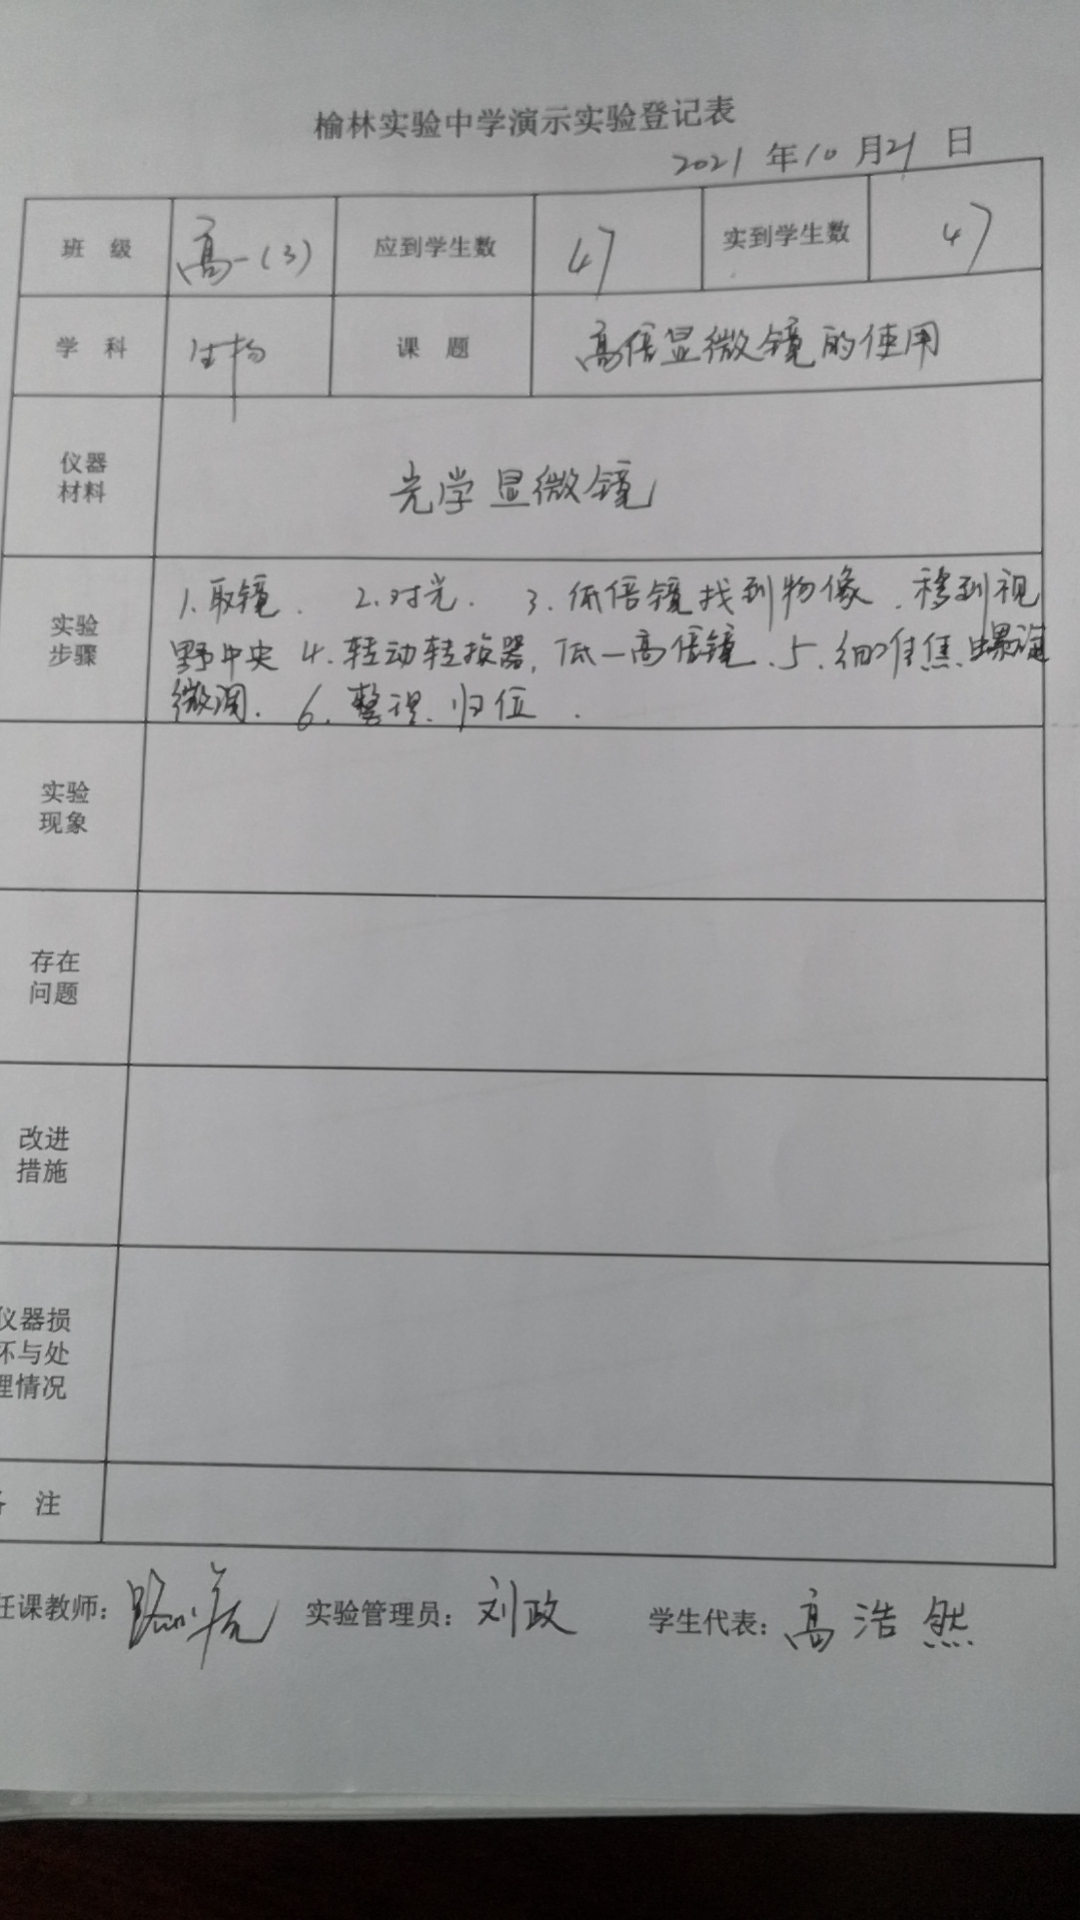 榆林实验中学演示实验登记表
2021 年 10 月 21 日
班 级 高一(3) 应到学生数 47 实到学生数 47
学 科 生物 课 题 高倍显微镜的使用
仪器
材料
光学显微镜
实验
步骤
1.取镜. 2.对光. 3.低倍镜找到物像.移到视
野中央 4.转动转换器,低—高倍镜.5.细准焦螺旋
微调. 6.整理.归位.
实验
现象
存在
问题
改进
措施
仪器损
坏与处
理情况
备 注
任课教师: 实验管理员: 刘政 学生代表: 高浩然